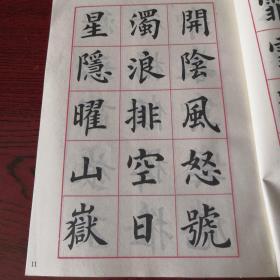 開陰風怒號
濁浪排空日
星隱曜山嶽
11